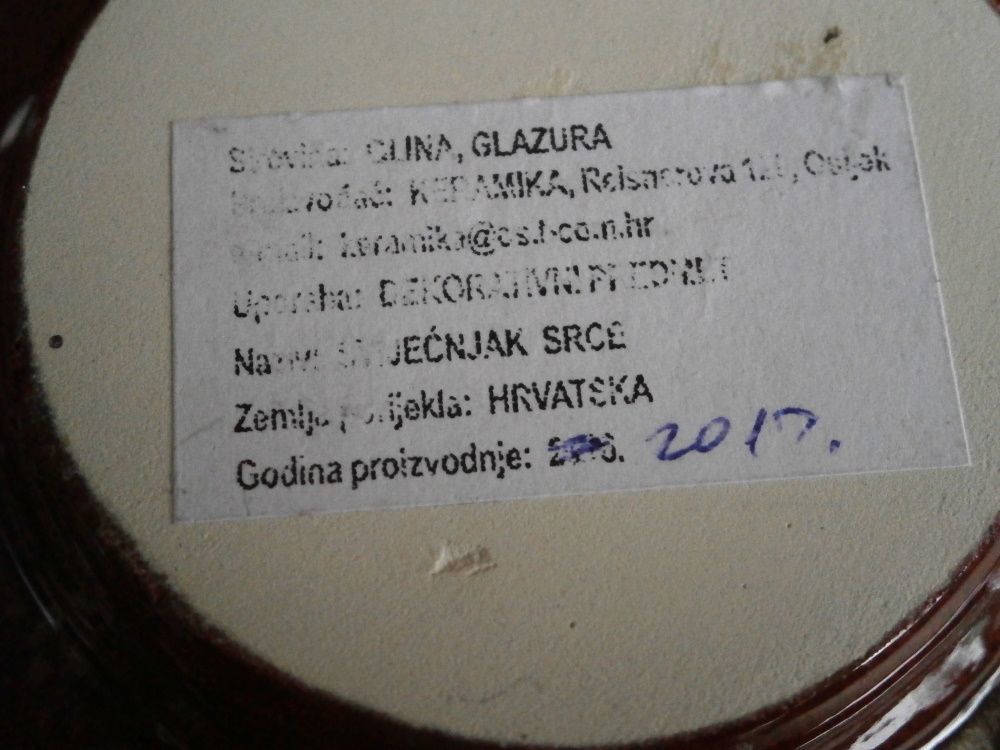 Sirovina: GLINA, GLAZURA
Proizvođač: KERAMIKA, Reisnerova Osijek
e-mail: keramika@os.t-com.hr
Uporaba: DEKORATIVNI PREDMET
Naziv: SVIJEĆNJAK SRCE
Zemlja porijekla: HRVATSKA
Godina proizvodnje: 2017.